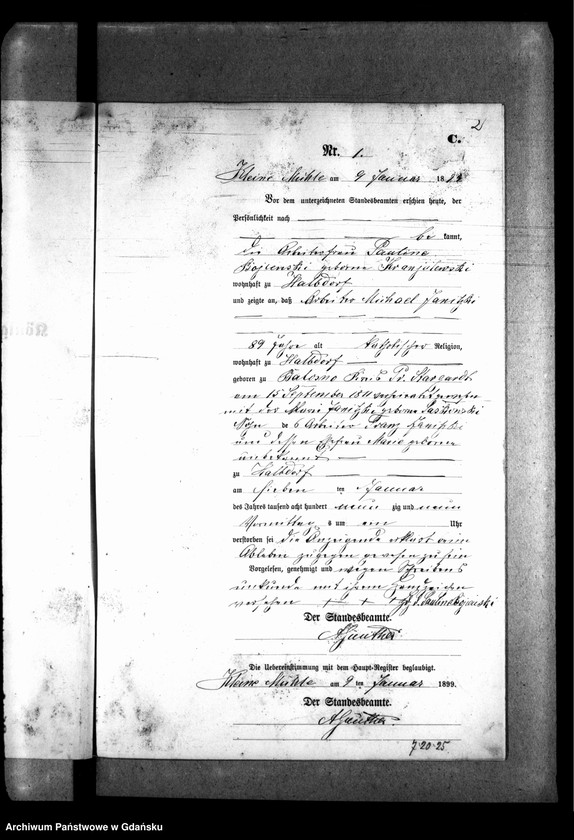 2
C.
Nr. 1.
Kleine Mühle am 9 Januar 1899
Vor dem unterzeichneten Standesbeamten erschien heute, der
Persönlichkeit nach
be kannt,
die Arbeiterfrau Pauline
geborene
wohnhaft zu Halbdorf
und zeigte an, daß Arbeiter Michael Janitzki
89 Jahre alt katholischer Religion,
wohnhaft zu Halbdorf
geboren zu Kreis Pr. Stargardt
am 15 September
mit der Marie Janitzki geborene
Sohn des Arbeiter Franz Janitzki
und dessen Ehefrau Marie geborene
unbekannt
zu Halbdorf
am sieben ten Januar
des Jahres tausend acht hundert neun zig und neun
Vormittags um ein Uhr
verstorben sei die Anzeigende erklärt beim
Ableben zugegen gewesen zu sein
Vorgelesen, genehmigt und wegen Schreibens
unkunde mit ihrem Handzeichen
versehen + + +
Der Standesbeamte.
AGünther
Die Uebereinstimmung mit dem Haupt-Register beglaubigt.
Kleine Mühle am 9 ten Januar 1899.
Der Standesbeamte.
AGünther
7-20-25
Archiwum Państwowe w Gdańsku